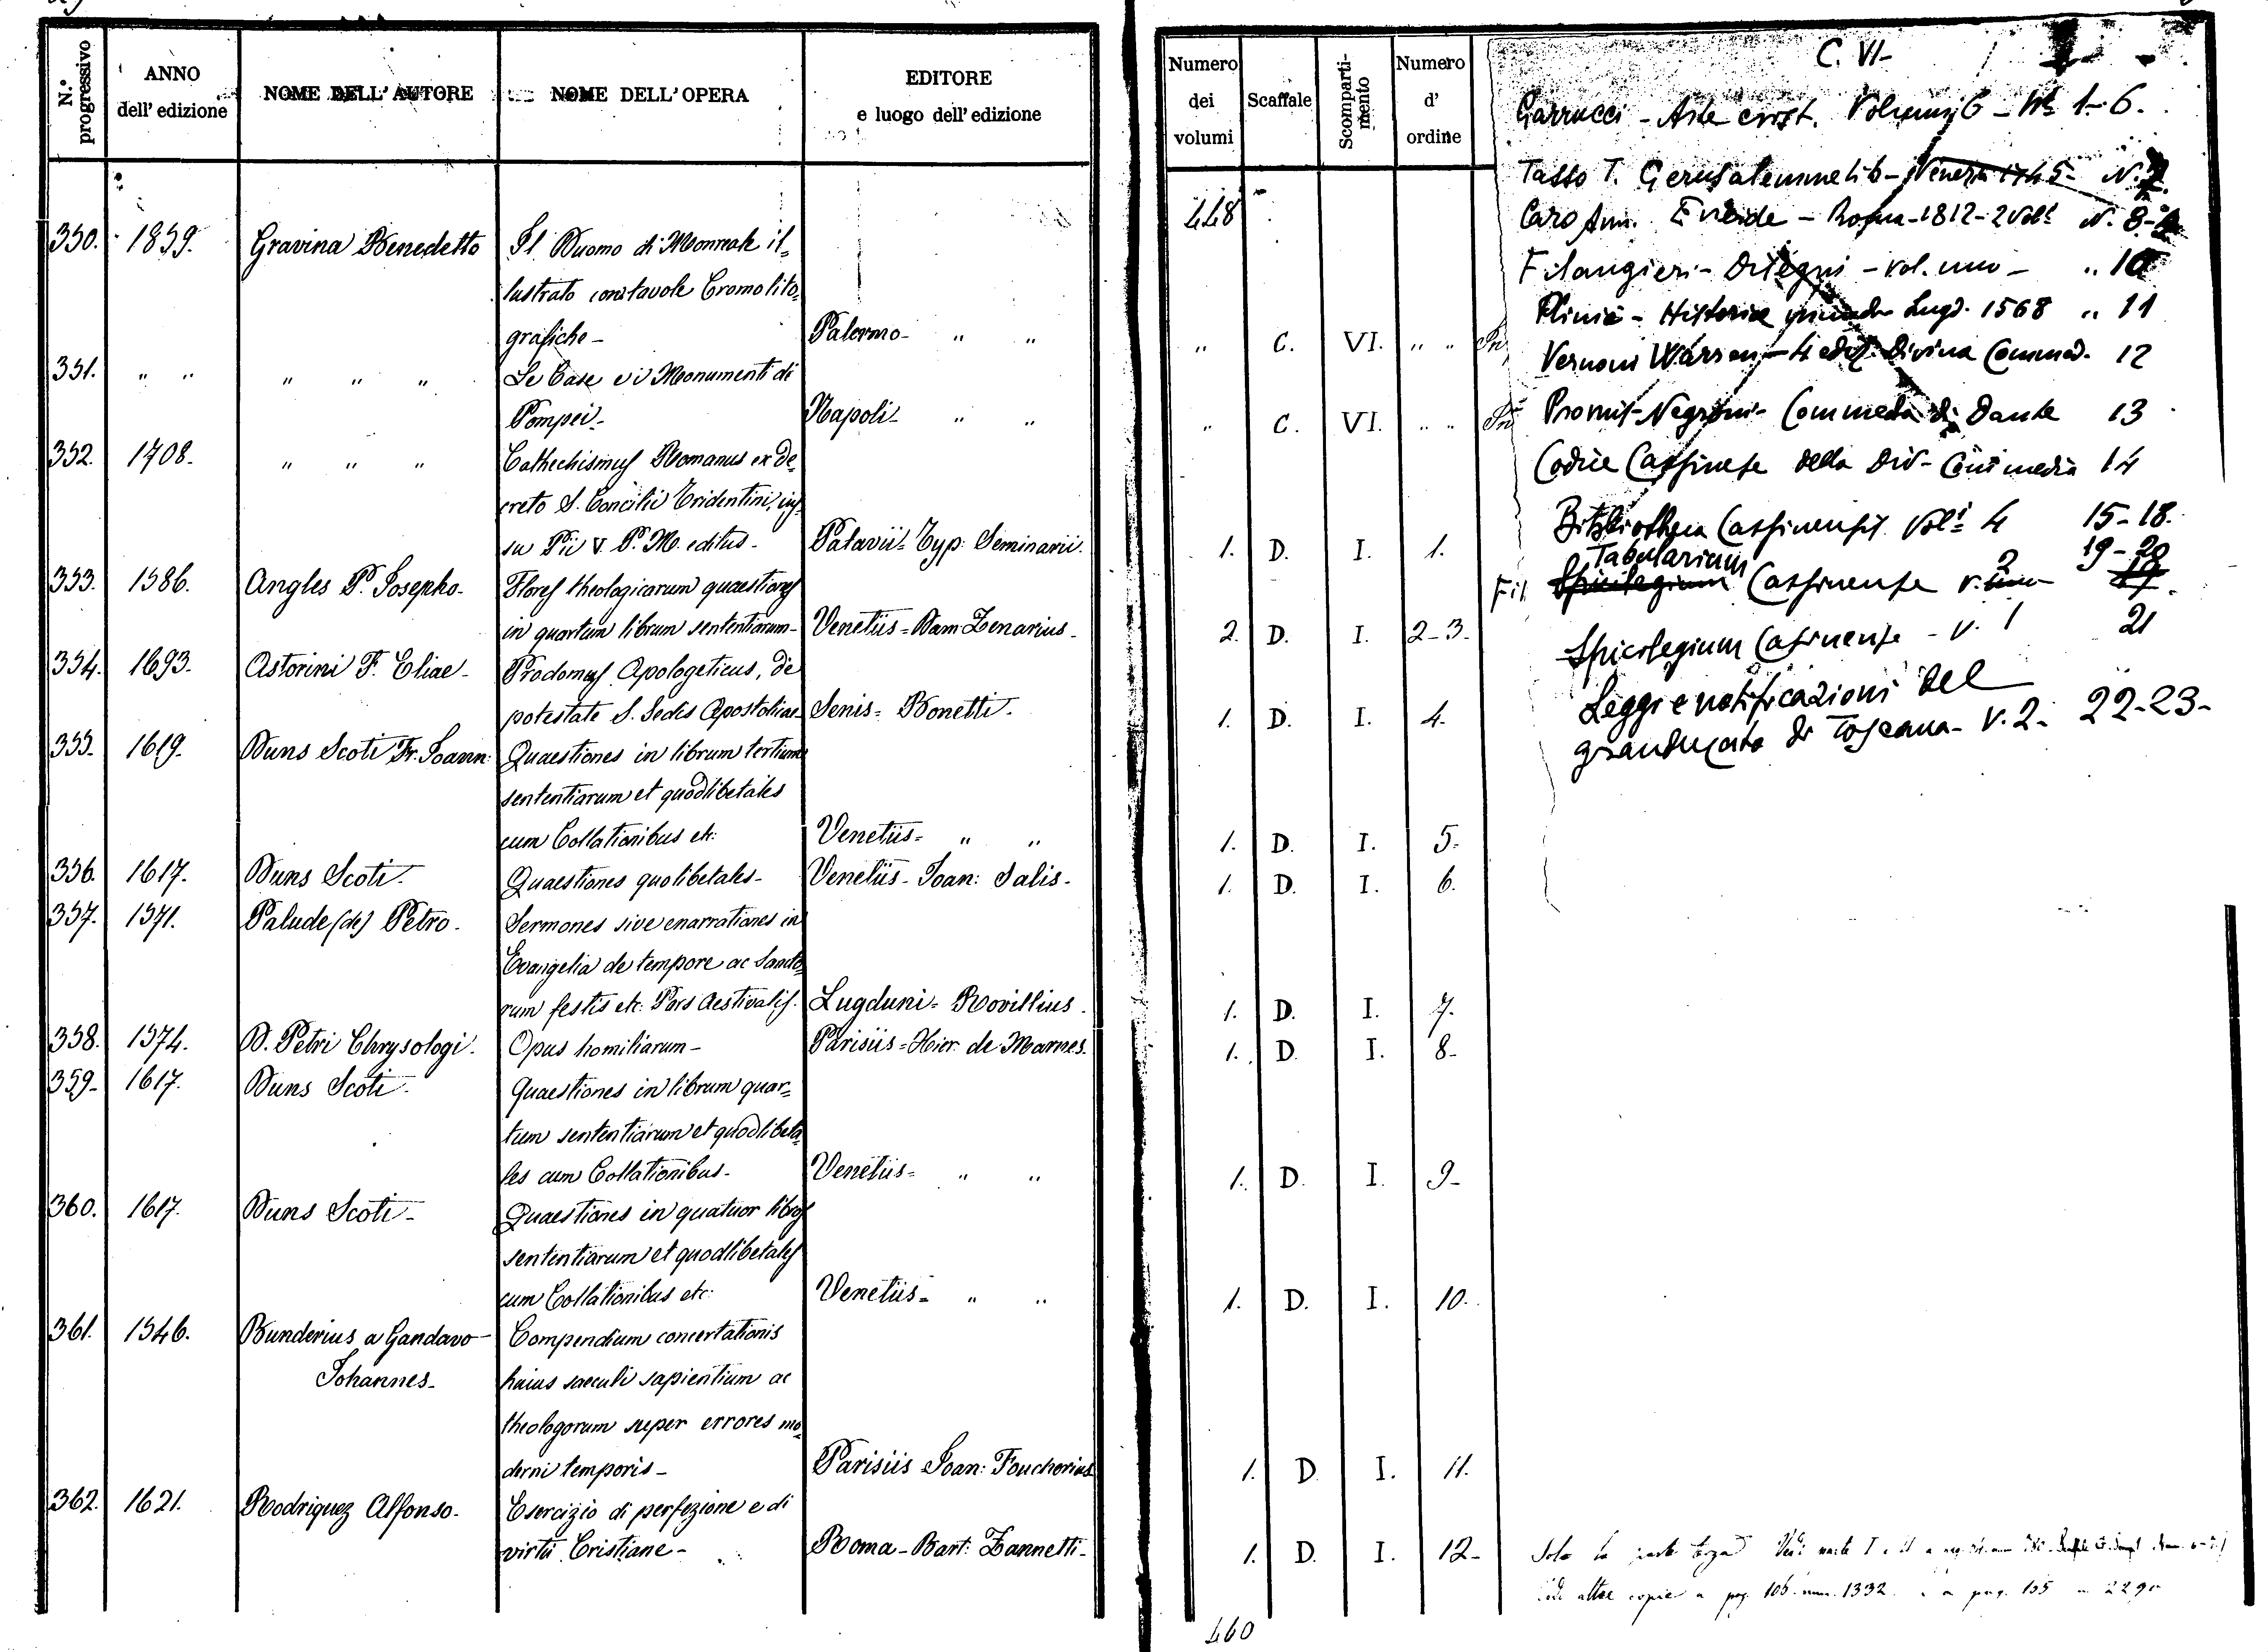 N.° progressivo
ANNO dell' edizione
NOME DELL' AUTORE
NOME DELL' OPERA
EDITORE e luogo dell' edizione
Numero dei volumi
Scaffale
Scomparti-mento
Numero d' ordine
448
350. 1859. Gravina Benedetto Il Duomo di Monreale il=
lustrato con tavole Cromolito=
grafiche- Palermo- " " " C. VI. " "
351. " " " " " Le Case ed i Monumenti di
Pompei- Napoli- " " " C. VI. " "
352. 1708. " " " Cathechismus Romanus ex de=
creto S. Concilii Tridentini, ius=
su Pii V. P. M. editus- Patavii= Typ: Seminarii. 1. D. I. 1.
353. 1586. Angles P. Josepho- Flores theologicarum quaestiones
in quartum librum sententiarum- Venetiis= Dam: Zenarius- 2. D. I. 2-3.
354. 1693. Astorini F. Eliae- Prodomus Apologeticus, de
potestate S. Sedis Apostolicae Senis= Bonetti. 1. D. I. 4.
355. 1619. Duns Scoti Fr. Joann: Quaestiones in librum tertium
sententiarum et quodlibetales
cum Collationibus etc: Venetiis= " " 1. D. I. 5.
356. 1617. Duns Scoti. Quaestiones quolibetales- Venetiis- Joan: Salis- 1. D. I. 6.
357. 1571. Palude (de) Petro. Sermones sive enarrationes in
Evangelia de tempore ac Sancto=
rum festis etc: Pars Aestivalis. Lugduni= Rovillius. 1. D. I. 7.
358. 1574. D. Petri Chrysologi. Opus homiliarum- Parisiis= Hier: de Marnes. 1. D. I. 8-
359- 1617. Duns Scoti. Quaestiones in librum quar=
tum sententiarum et quodlibeta=
les cum Collationibus- Venetiis= " " 1. D. I. 9-
360. 1617. Duns Scoti- Quaestiones in quatuor libros
sententiarum et quodlibetales
cum Collationibus etc: Venetiis= " " 1. D. I. 10.
361. 1546. Bunderius a Gandavo Compendium concertationis
Johannes- huius saeculi sapientium ac
theologorum super errores mo=
derni temporis- Parisiis Joan: Foucherius 1. D. I. 11.
362. 1621. Rodriquez Alfonso. Esercizio di perfezione e di
virtù Cristiane- Roma- Bart: Zannetti- 1. D. I. 12-
460
C. VI-
Garrucci - Arte crist. Volumi 6 - Ni 1-6.
Tasso T. Gerusalemme lib- Venezia 1745- N. 7.
Caro Ann. Eneide - Roma-1812-2 Voli N. 8-9
Filangieri- Disegni - vol. uno - " 10
Plinii - Historiae mundi Lugd. 1568 " 11
Vernons Warren- 4 ediz. Divina Commed. 12
Promis-Negroni- Commedia di Dante 13
Codice Cassinese della Div- Commedia 14
Bibliotheca Cassinensis Voli 4 15-18.
Tabularium Cassinense v. 2 19-20
Spicilegium Casinense - v. 1 21
Leggi e notificazioni del
granducato di Toscana- v. 2- 22-23-
Solo la parte terza
altre copie a pag. 106. num. 1332. a pag. 155